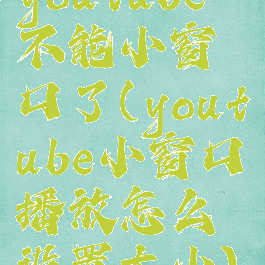 youtube
不能小窗
口了(yout
ube小窗口
播放怎么
设置大小)